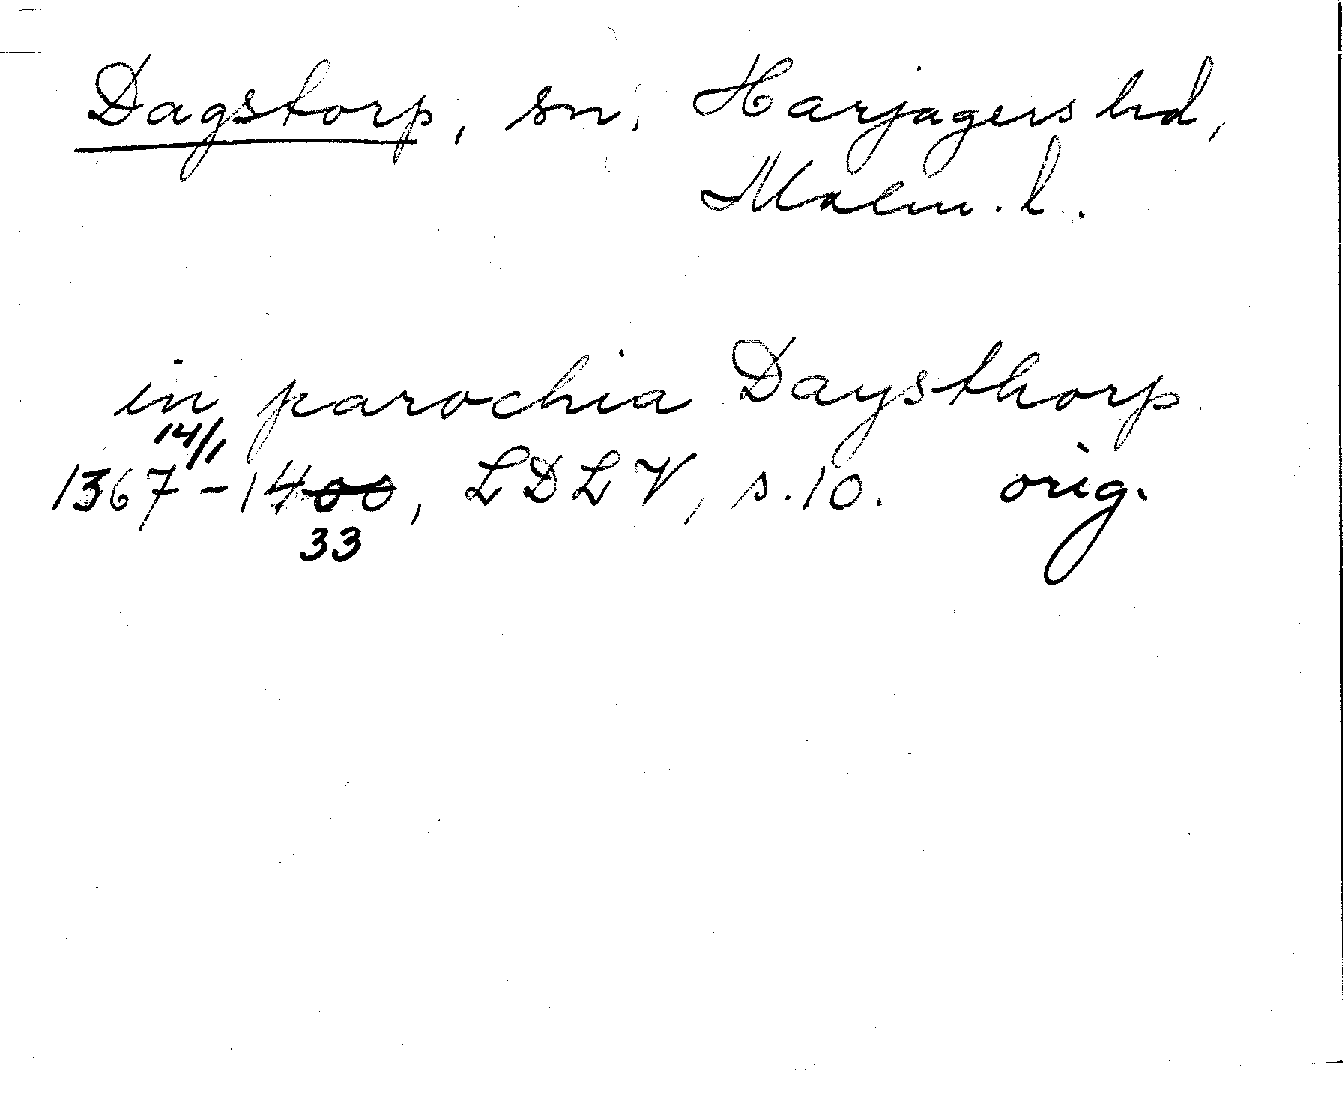 Dagstorp, sn, Harjagers hd,
Malm. l.
in parochia Daysthorp
14/1
1367-1400, LDLV, s.10. orig.
33